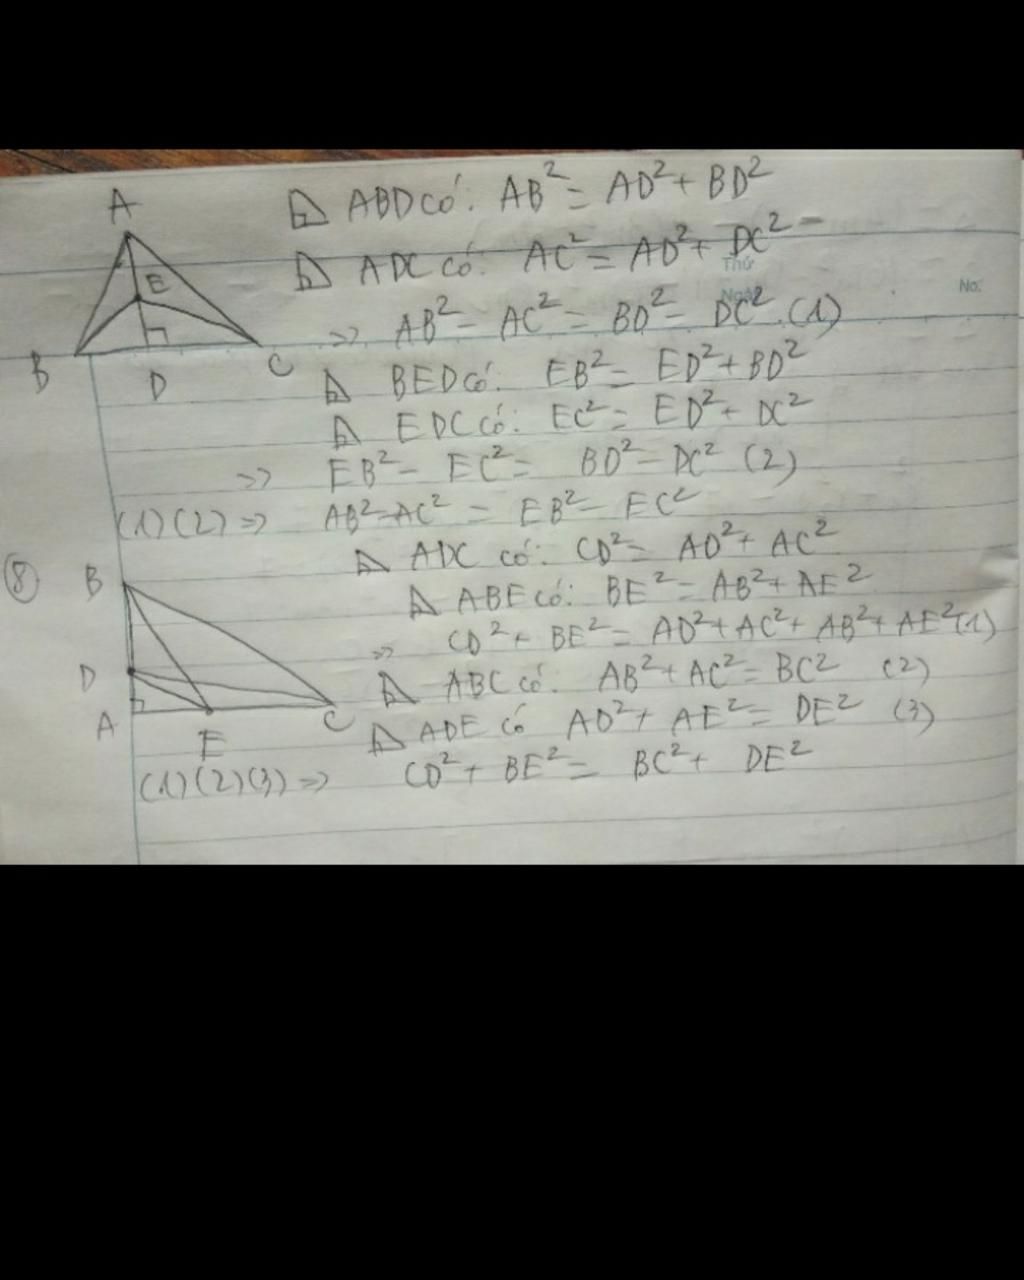 A
⊿ ABD có: AB² = AD² + BD²
E
⊿ ADC có: AC² = AD² + DC² −
Thứ
Ngày
No.
B
D
C
=> AB² − AC² = BD² − DC². (1)
⊿ BED có: EB² = ED² + BD²
⊿ EDC có: EC² = ED² + DC²
=> EB² − EC² = BD² − DC² (2)
(1) (2) => AB² − AC² = EB² − EC²
⑧ B
⊿ ADC có: CD² = AD² + AC²
⊿ ABE có: BE² = AB² + AE²
=> CD² + BE² = AD² + AC² + AB² + AE² (1)
D
⊿ ABC có: AB² + AC² = BC² (2)
A
E
C
⊿ ADE có AD² + AE² = DE² (3)
(1) (2) (3) => CD² + BE² = BC² + DE²